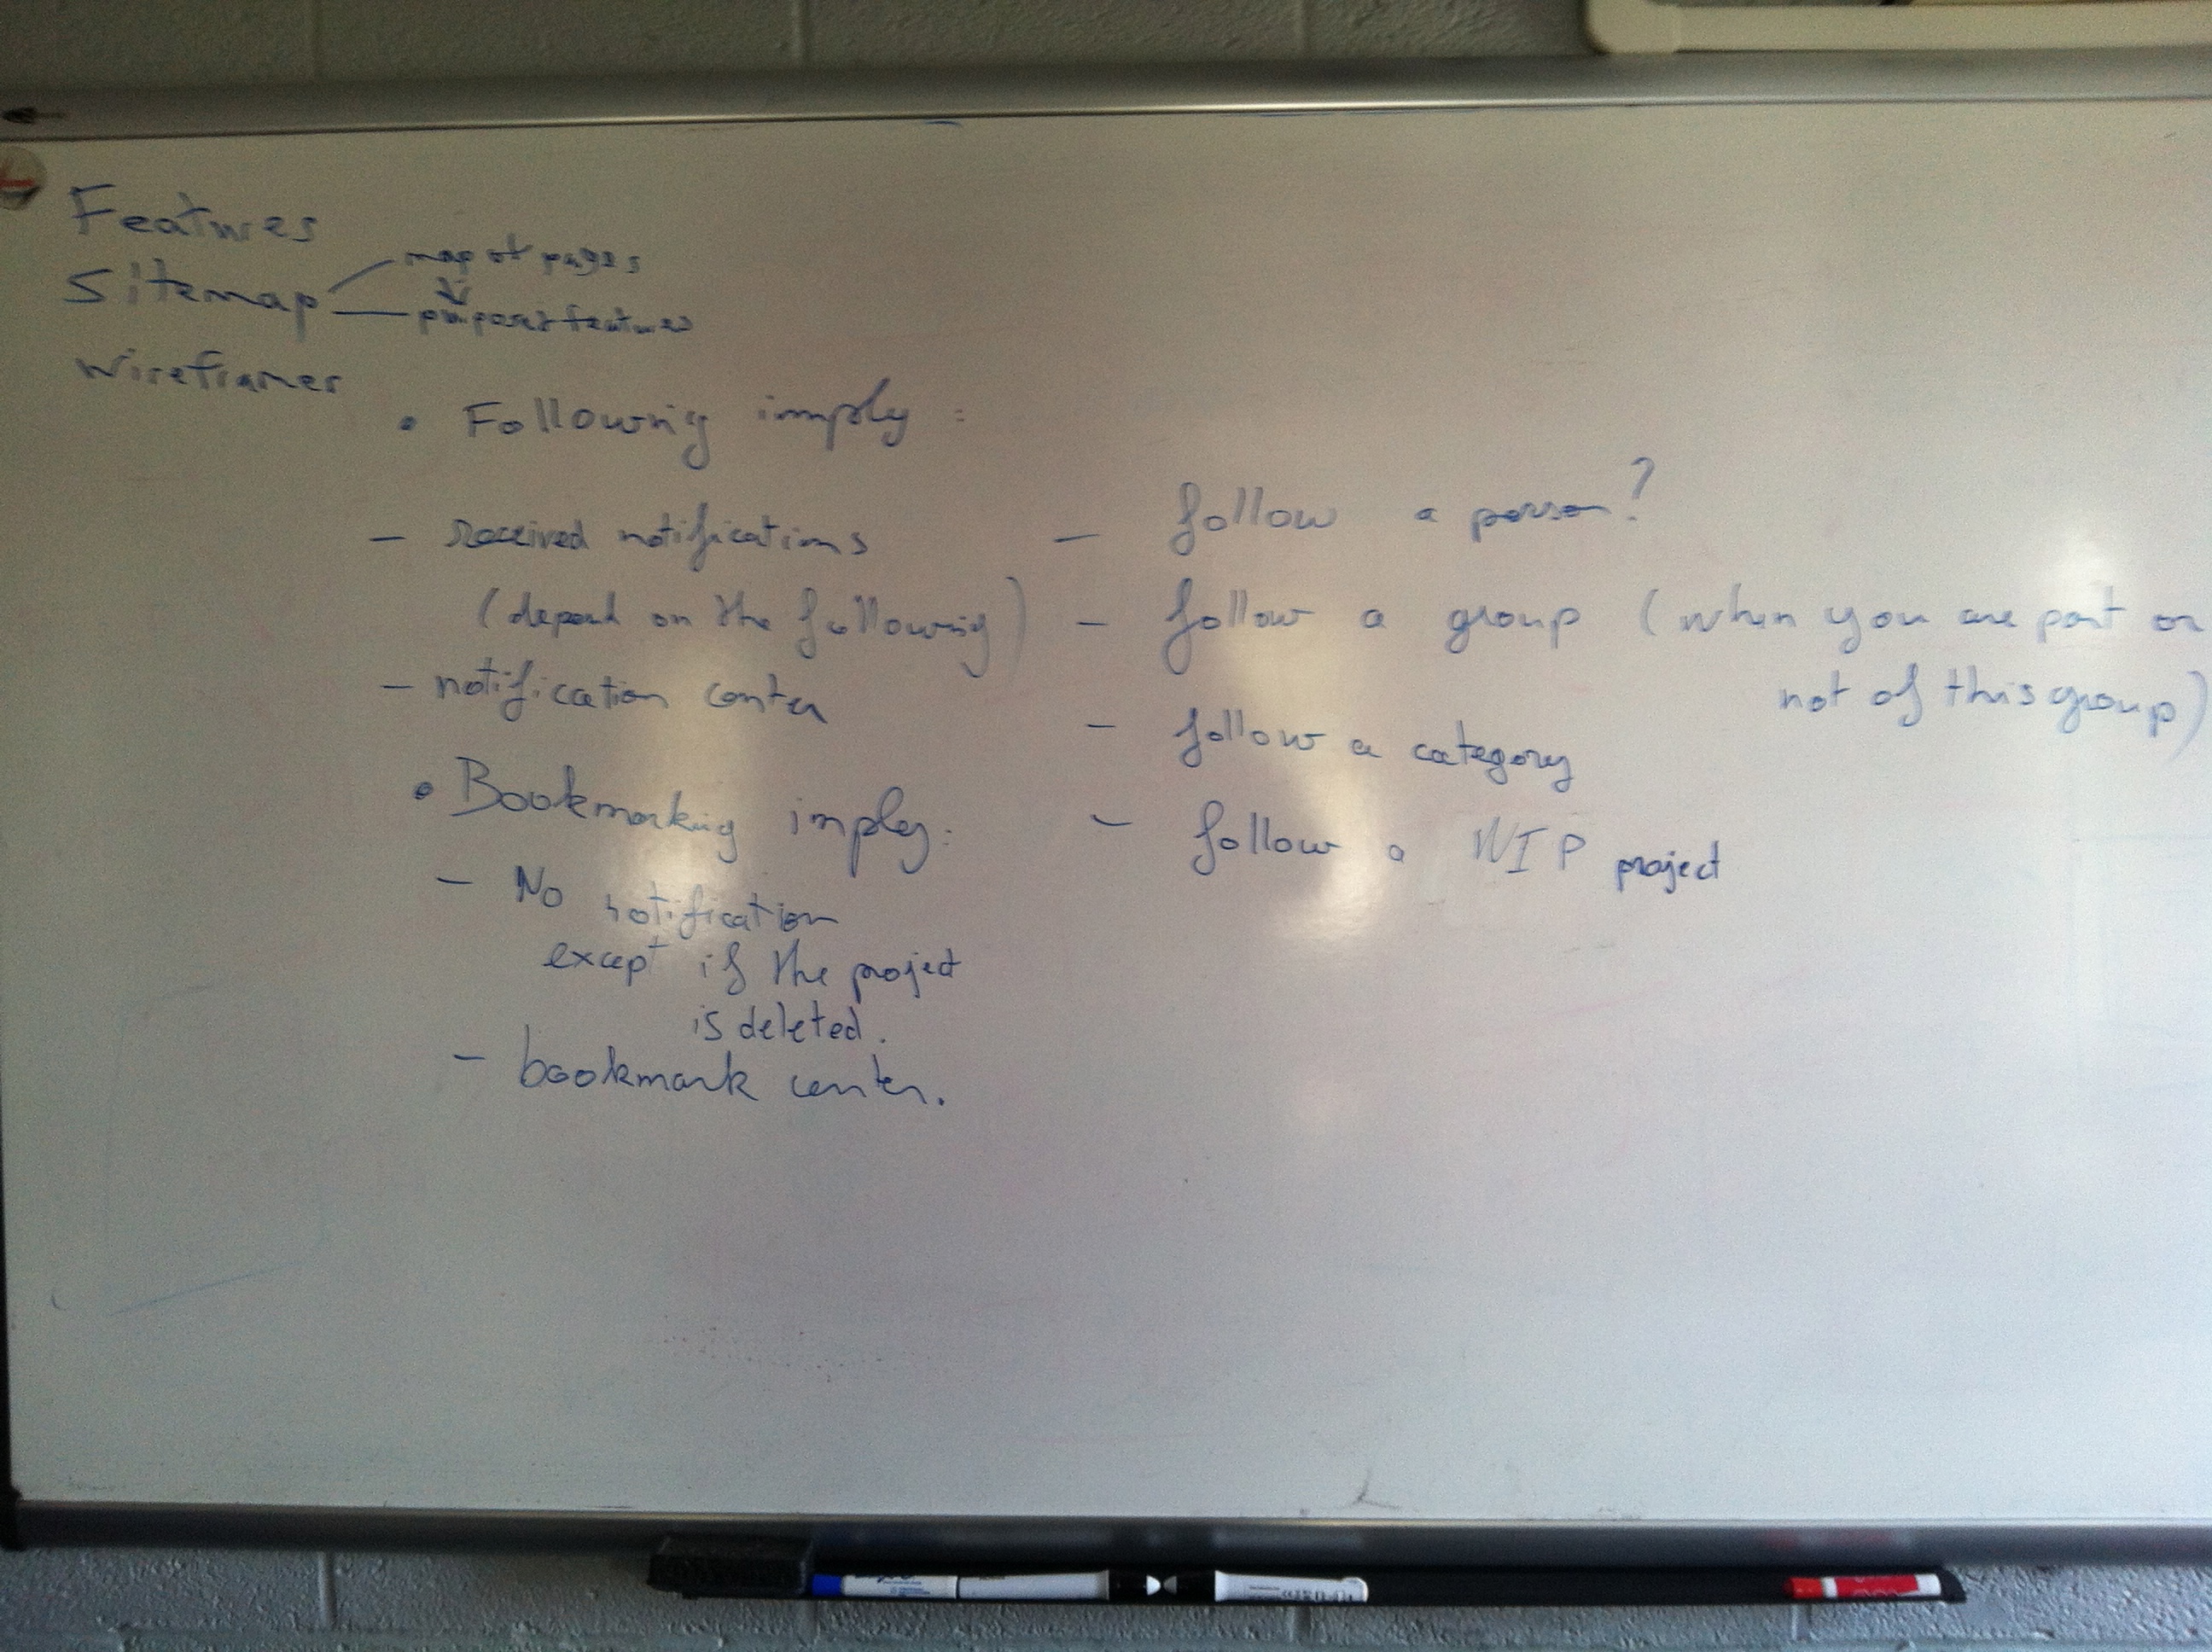 Features
Sitemap
map of pages
features
Wireframes
• Following imply :
– received notifications
(depend on the following)
– notification center
• Bookmarking imply:
– No notification
except if the project
is deleted.
– bookmark center.
– follow a person?
– follow a group (when you are part or
not of this group)
– follow a category
– follow a WIP project